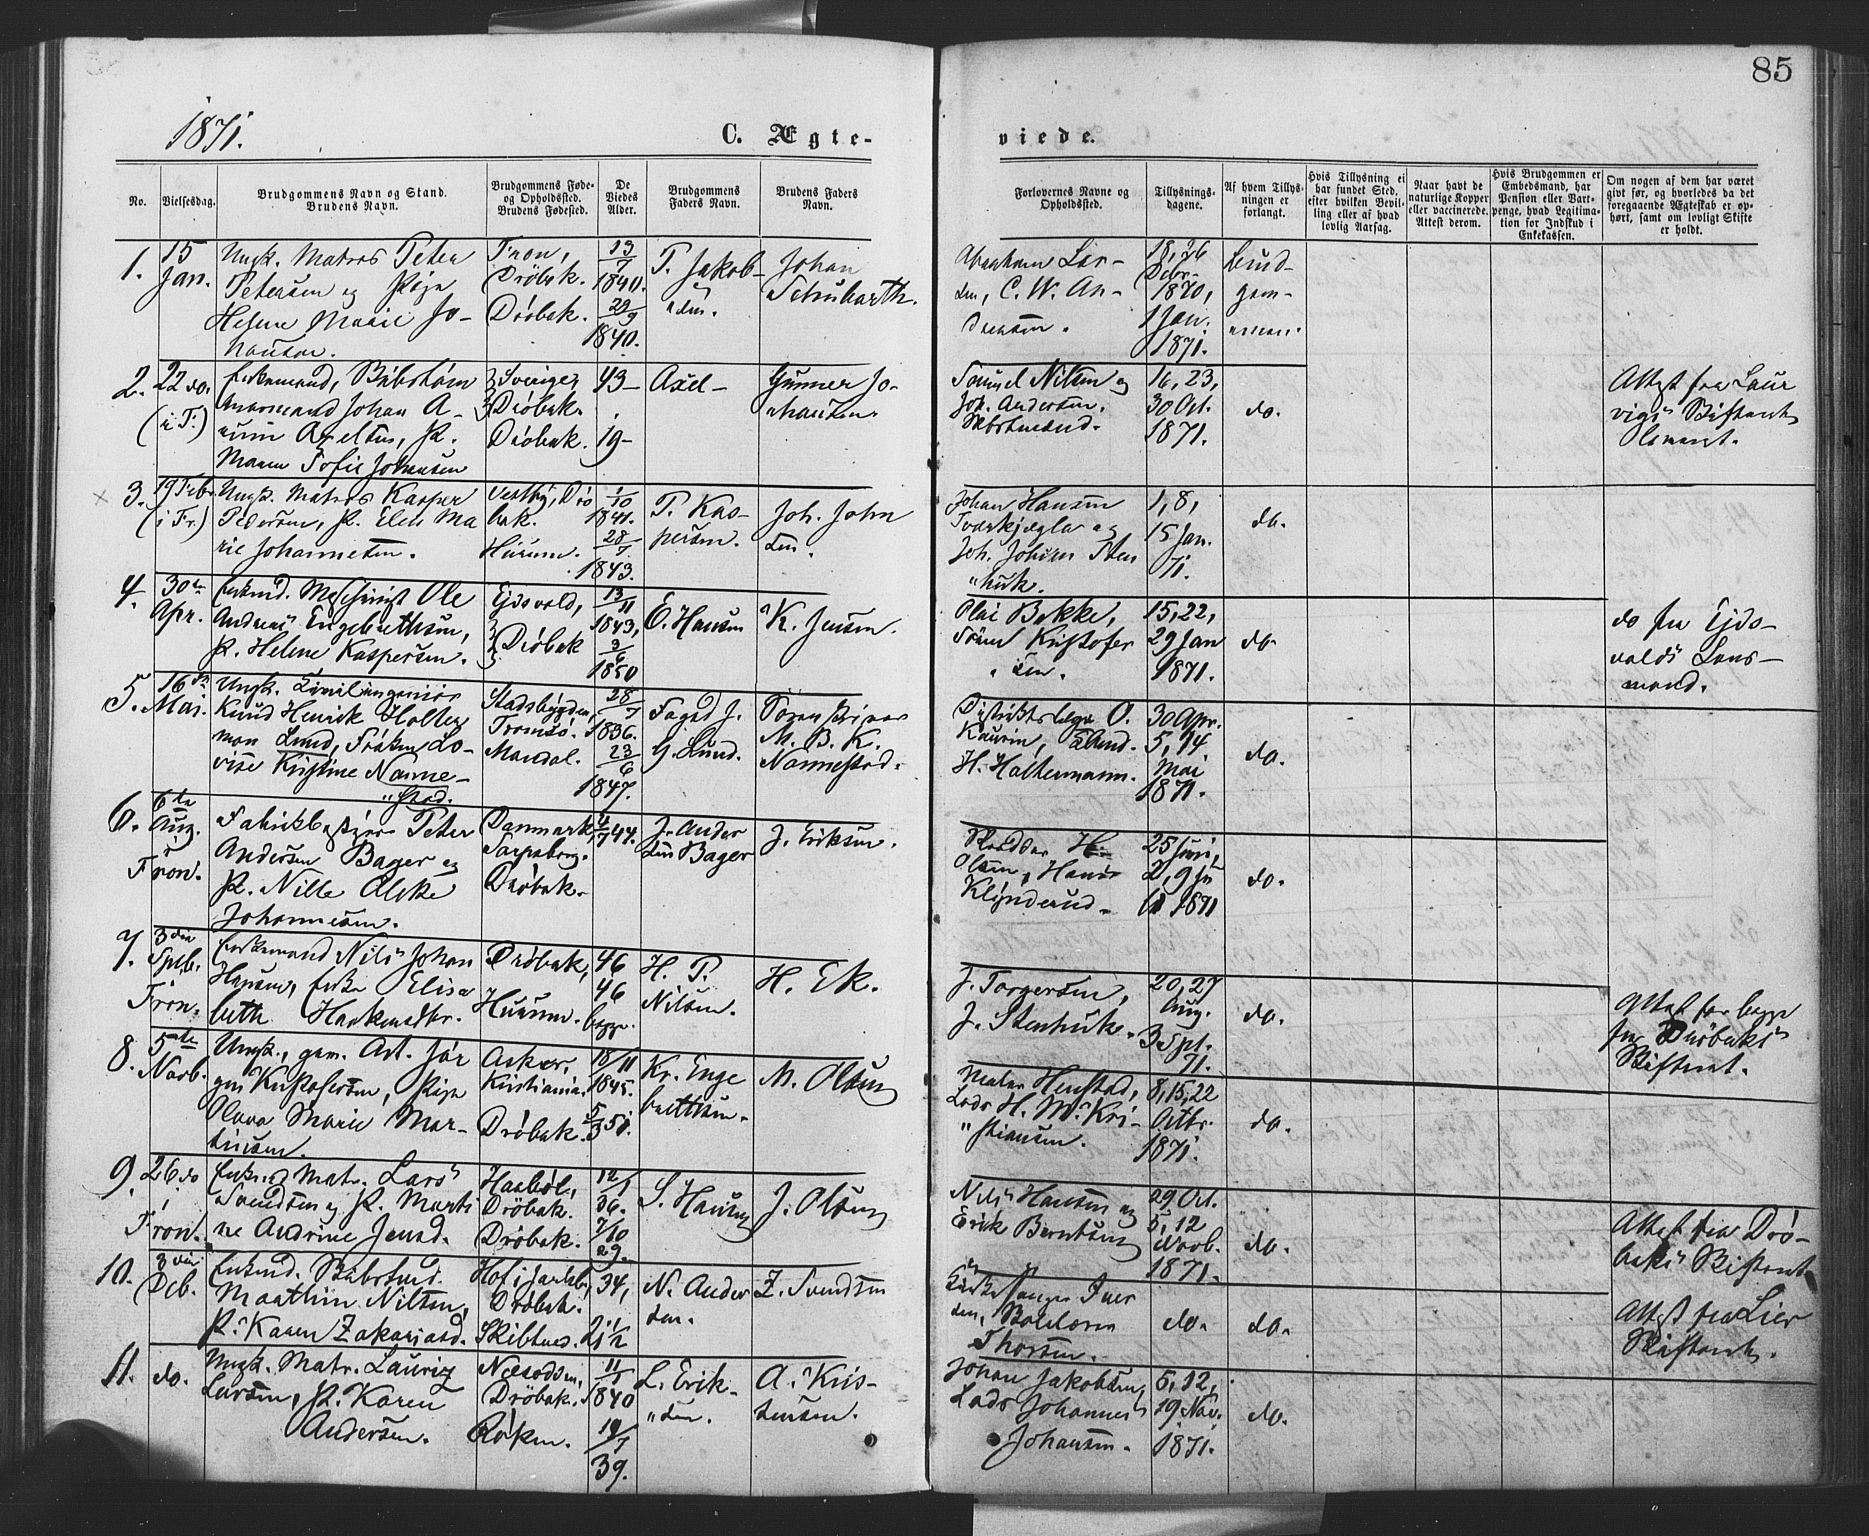 85
1871.
C. Ægte-
viede.
No.
Vielsesdag.
Brudgommens Navn og Stand.
Brudens Navn.
Brudgommens Føde-
og Opholdssted.
Brudens Fødested.
De
Viedes
Alder.
Brudgommens
Faders Navn.
Brudens Faders
Navn.
Forlovernes Navne og
Opholdssted.
Tillysnings-
dagene.
Af hvem Tillys-
ningen er
forlangt.
Hvis Tillysning ei
har fundet Sted,
efter hvilken Bevil-
ling eller af hvad
lovlig Aarsag.
Naar havt de
naturlige Kopper
eller vaccinerede.
Attest derom.
Hvis Brudgommen er
Embedsmand, har
Pension eller Vart-
penge, hvad Legitima-
tion for Indskud i
Enkekassen.
Om nogen af dem har været
givt før, og hvorledes da det
foregaaende Ægteskab er op-
hørt, samt om lovligt Skifte
er holdt.
1.
15
Jan.
Ungk. Matros Peter
Petersen og Pige
Helene Marie Jo-
hansen.
Fron,
Dröbak.
Dröbak.
13/7
1840.
29/9
1840.
P. Jakob-
sen.
Johan
Schubarth.
Abraham Lar-
sen, C. W. An-
dersen.
18, 26
Debr.
1870,
1 Jan.
1871.
Brud-
gom-
men.
2.
22 do.
(i F.)
Enkemand,
Johan A-
Axelsen, P.
Maren Sofie Johansen
Sverige,
Dröbak.
Dröbak.
43-
19-
Axel-
Gunner Jo-
hansen.
Samuel Nilsen og
Joh. Andersen.
16, 23,
30 Oct.
1871.
do.
Attest fra Laur
vigs Skifteret
3.
19 Febr.
(i Fr.)
Ungk. Matros Kasper
Pedersen, P. Elen Ma
rie Johannesen.
Vestby, Drö
bak.
Hurum.
1/10
1841.
28/7
1843.
P. Kas-
persen.
Joh. John
sen.
Johan Hansen
og
Joh. Johan Sten
huk.
1, 8,
15 Jan.
71.
do.
4.
30te
Apr.
Enkmd. Maschinist Ole
Andreas Engebrethsen,
P. Helene Kaspersen.
Ejdsvold,
Dröbak
13/11
1843,
3/6
1850
E. Hansen
K. Jensen.
Olai Bakke,
Kristofer
sen.
15, 22,
29 Jan
1871.
do
do fra Ejds-
volds Lens-
mand.
5.
16de
Mai.
Ungk. Civilingeniör
Knud Henrik Holter
man Lund, Fröken Lo-
vise Kristine Nanne-
stad.
Stadsbygden,
Tromsö.
Mandal.
28/7
1836.
23/6
1847.
Foged J.
G. Lund.
Sorenskriver
M. B. K.
Nannestad.
Distriktslæge O.
Kaurin,
H. Haltermann.
30 Apr.
5, 14
Mai
1871.
do.
6.
6te
Aug.
i
Fron.
Fabrikbestyrer Peter
Andersen Bager og
P. Nille Elske
Johannesen.
Danmark,
Sarpsborg.
Dröbak.
4/7 44.
J. Ander
sen Bager
J. Eriksen.
Skrædder H.
Olsen, Hans
Klynderud.
25 Juni,
2, 9 Ju
li 1871
do.
7.
3die
Sptb.
i
Fron.
Enkemand Nils Johan
Hansen, Enke Elisa
beth Haakensdtr.
Dröbak,
Hurum.
46
46
begge.
H. P.
Nilsen.
H. Ek.
J. Torgersen,
J. Stenhuk.
20, 27
Aug.
3 Spt.
71.
do.
Attest for begge
fra Dröbaks
Skifteret.
8.
5te
Novb.
Ungk., gam. Art. Jör
gen Kristofersen, Pige
Olava Marie Mar-
tinsen.
Asker,
Kristiania.
Dröbak.
18/11
1845.
5/3 51.
Kr. Enge
brettsen.
M. Olsen
Maler Henstad,
Lods H. M. Kri-
stiansen.
8, 15, 22
Octbr.
1871.
do.
9.
26 do
i
Fron.
Enkmd Matr. Lars
Svendsen og P. Marti
ne Andrine Jensd.
Haaböl,
Dröbak.
Dröbak.
12/1
36.
7/10
29.
S. Hansen
J. Olsen
Nils Hansen og
Erik Berntsen
29 Oct.
5, 12
Novb.
1871.
do.
Attest fra Drö-
baks Skifteret
10.
3die
Dcb.
Enkmd.
Mathias Nilsen,
P. Karen Zakariasd.
Hof i Jarlsb,
Dröbak.
Skibtvet.
34,
21 1/2
N. Ander
sen.
Z. Svendsen
Kirkesanger Iver
sen,
Thorsen.
do.
do.
Attest fra Lier
Skifteret.
11.
do.
Ungk. Matr. Lauritz
Larsen, P. Karen
Andersen.
Nesodden,
Dröbak.
Röken.
11/1
1840
19/7
39.
L. Erik-
sen.
A. Kris-
tensen.
Johan Jakobsen,
Lods Johannes
Johansen.
5, 12,
19 Nov.
1871.
do.